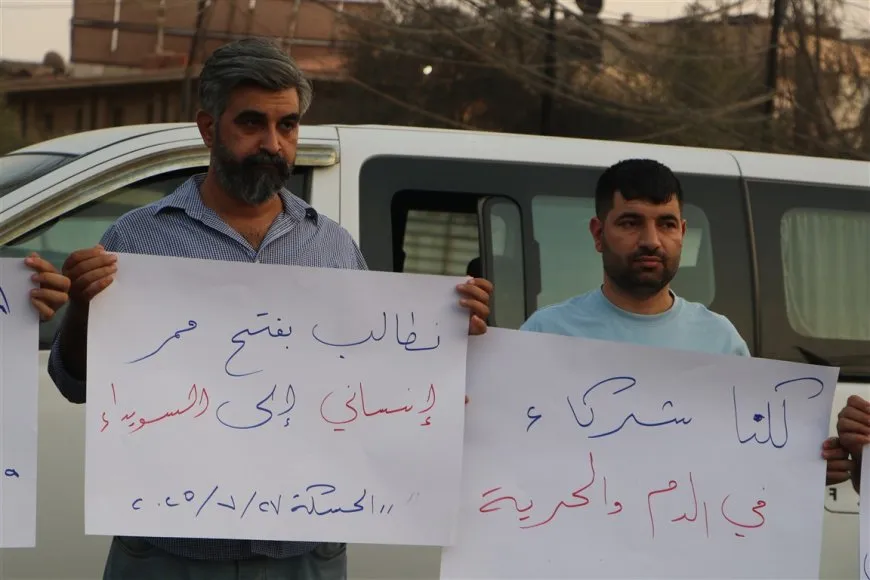 نطالب بفتح ممر
إنساني إلى السويداء
الحسكة ٢٠٢٥/٧/٢٧
كلنا شركاء
في الدم والحرية